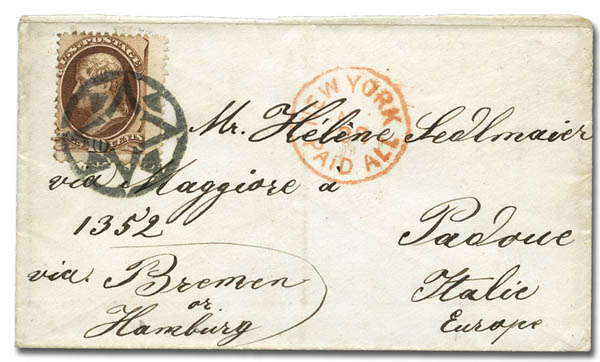 U.S. POSTAGE
CENTS
NEW YORK
PAID ALL
Mr. Hélène Sedlmaier
via Maggiore a
1352
Padoue
Italie
Europe
via. Bremen
or
Hamburg